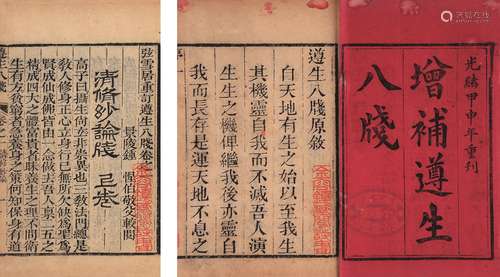 光緒甲申年重刊
增補遵生
八牋
遵生八牋原敘
自天地有生之始以至我生
其機靈自我而不滅吾人演
生生之機俾繼我後亦靈自
我而長存是運天地不息之
弦雪居重訂遵生八牋卷之
景陵鍾惺伯敬父較閱
清修妙論牋
高子曰攝生尚玄非崇異也三教法門總是
教人修身正心立身行己無所欠缺爲聖爲
賢成仙成佛皆由一念做去吾人禀二五之
精成四大之體富貴者昧養生之理不問衛
生有方貧窮者急養身之策何知保身有道